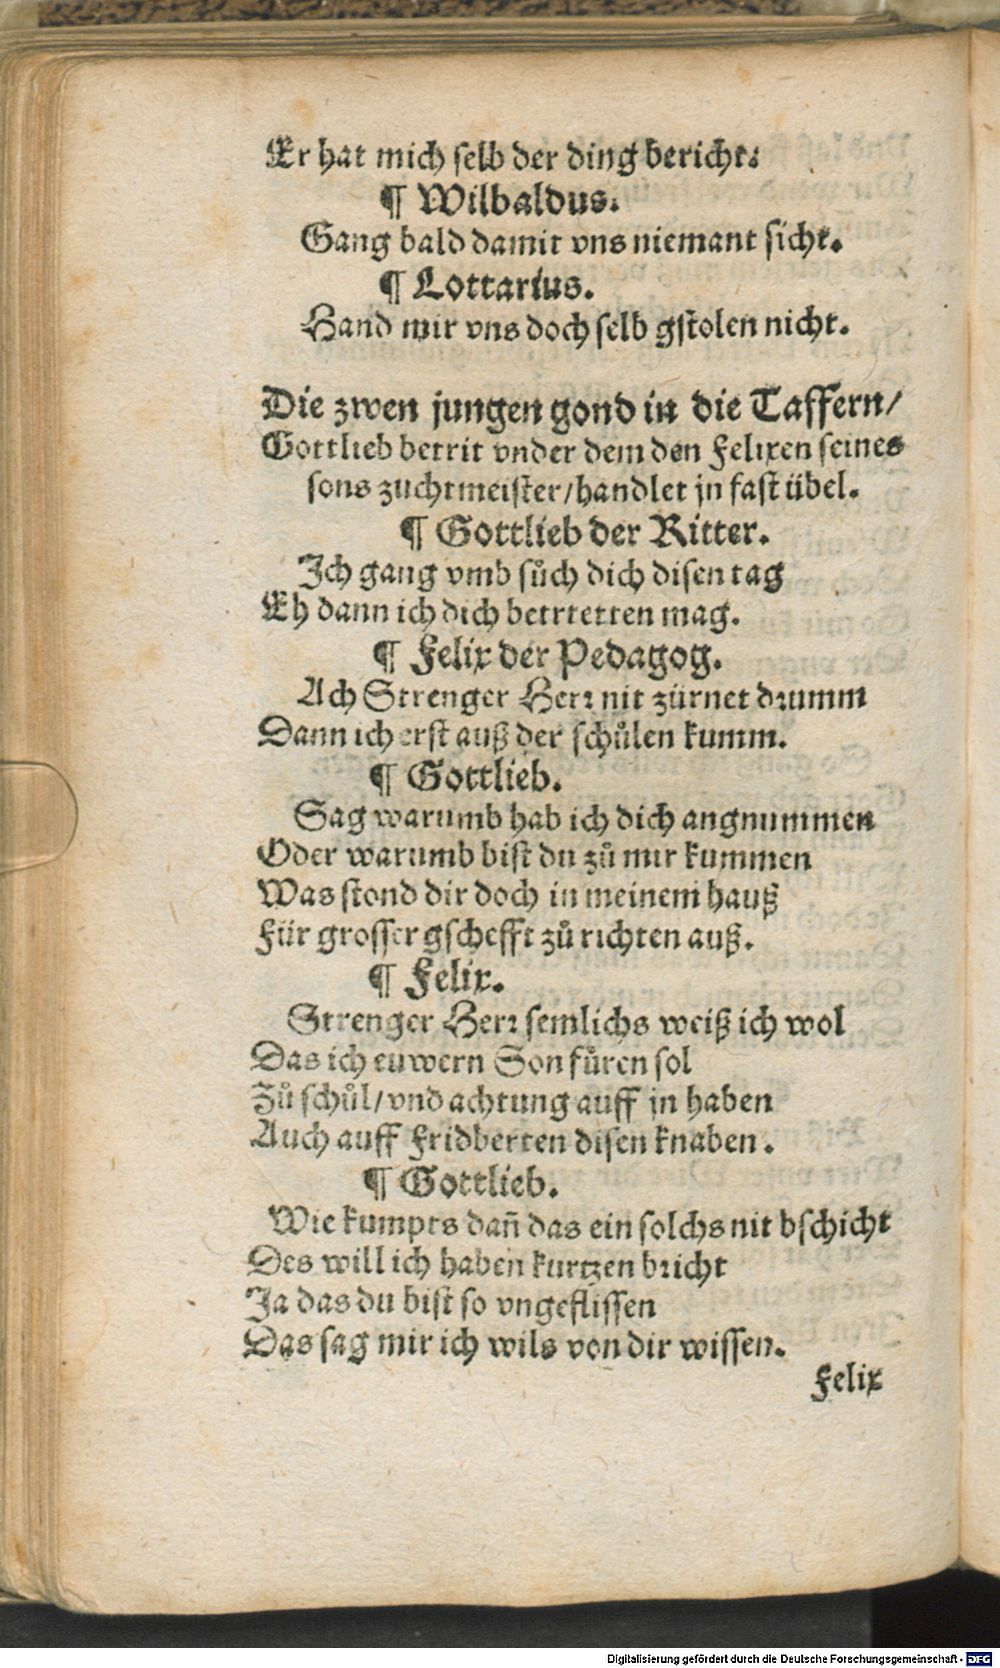 Er hat mich selb der ding bericht.
¶ Wilbaldus.
Gang bald damit vns niemant sicht.
¶ Lottarius.
Hand wir vns doch selb gstolen nicht.
Die zwen jungen gond in die Taffern/
Gottlieb betrit vnder dem den Felixen seines
sons zuchtmeister/handlet jn fast übel.
¶ Gottlieb der Ritter.
Ich gang vmb sůch dich disen tag
Eh dann ich dich bettretten mag.
¶ Felix der Pedagog.
Ach Strenger Herr nit zürnet drumm
Dann ich erst auß der schůlen kumm.
¶ Gottlieb.
Sag warumb hab ich dich angnummen
Oder warumb bist du zů mir kummen
Was stond dir doch in meinem hauß
Für grosser gschefft zů richten auß.
¶ Felix.
Strenger Herr semlichs weiß ich wol
Das ich euwern Son fůren sol
Zů schůl/vnd achtung auff jn haben
Auch auff Fridberten disen knaben.
¶ Gottlieb.
Wie kumpts dañ das ein solchs nit bschicht
Des will ich haben kurtzen bricht
Ja das du bist so vngeflissen
Das sag mir ich wils von dir wissen.
Felix
Digitalisierung gefördert durch die Deutsche Forschungsgemeinschaft - DFG